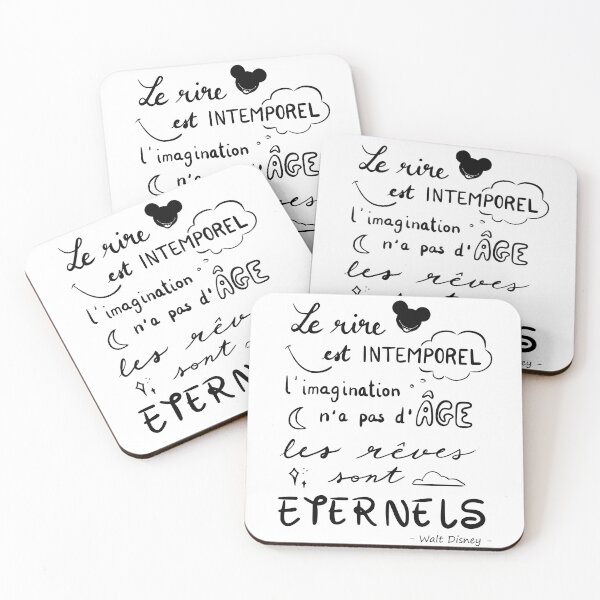 Le rire
est INTEMPOREL
l'imagination
n'a pas d'ÂGE
Le rire
est INTEMPOREL
l'imagination
n'a pas d'ÂGE
les rêves
Le rire
est INTEMPOREL
l'imagination
n'a pas d'ÂGE
les rêves
sont
ETERNELS
Le rire
est INTEMPOREL
l'imagination
n'a pas d'ÂGE
les rêves
sont
ETERNELS
- Walt Disney -